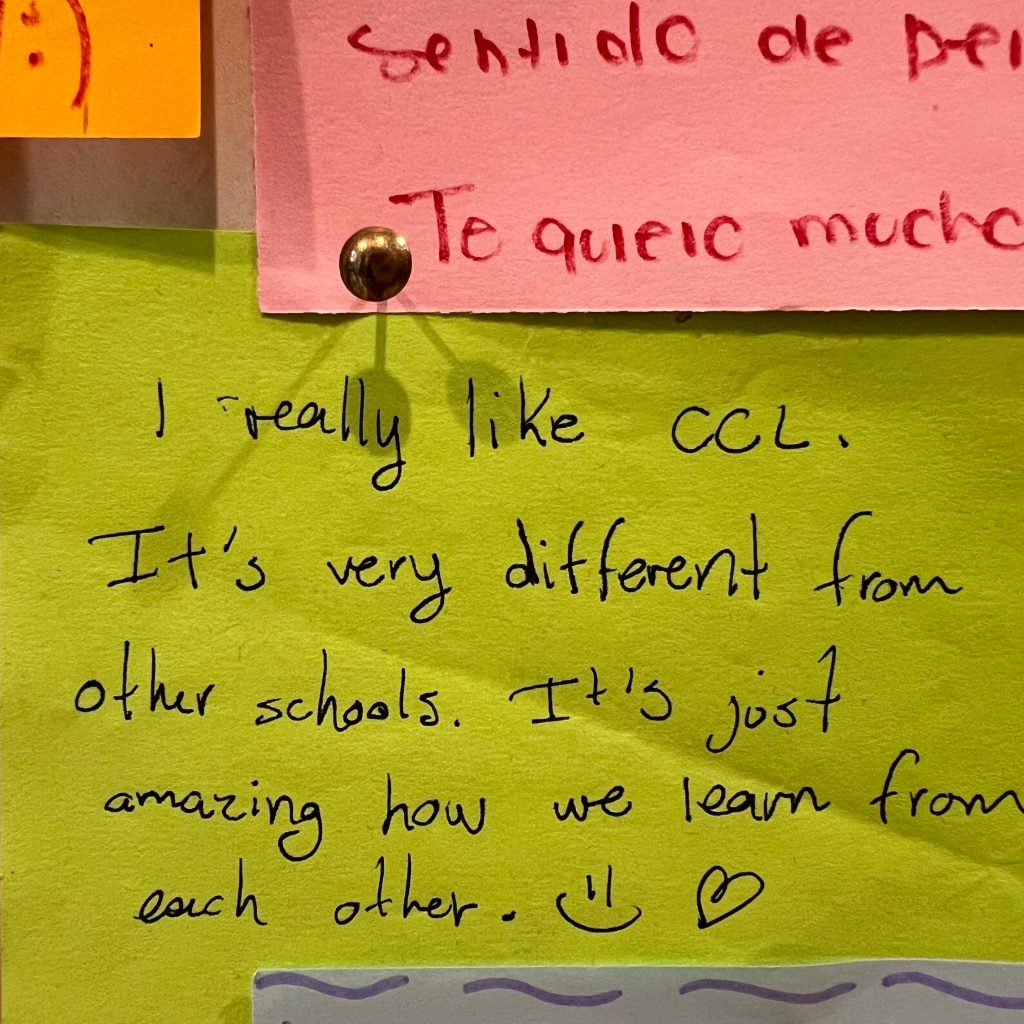 :)
sentido de
Te quiero mucho
I really like CCL.
It's very different from
other schools. It's just
amazing how we learn from
each other.